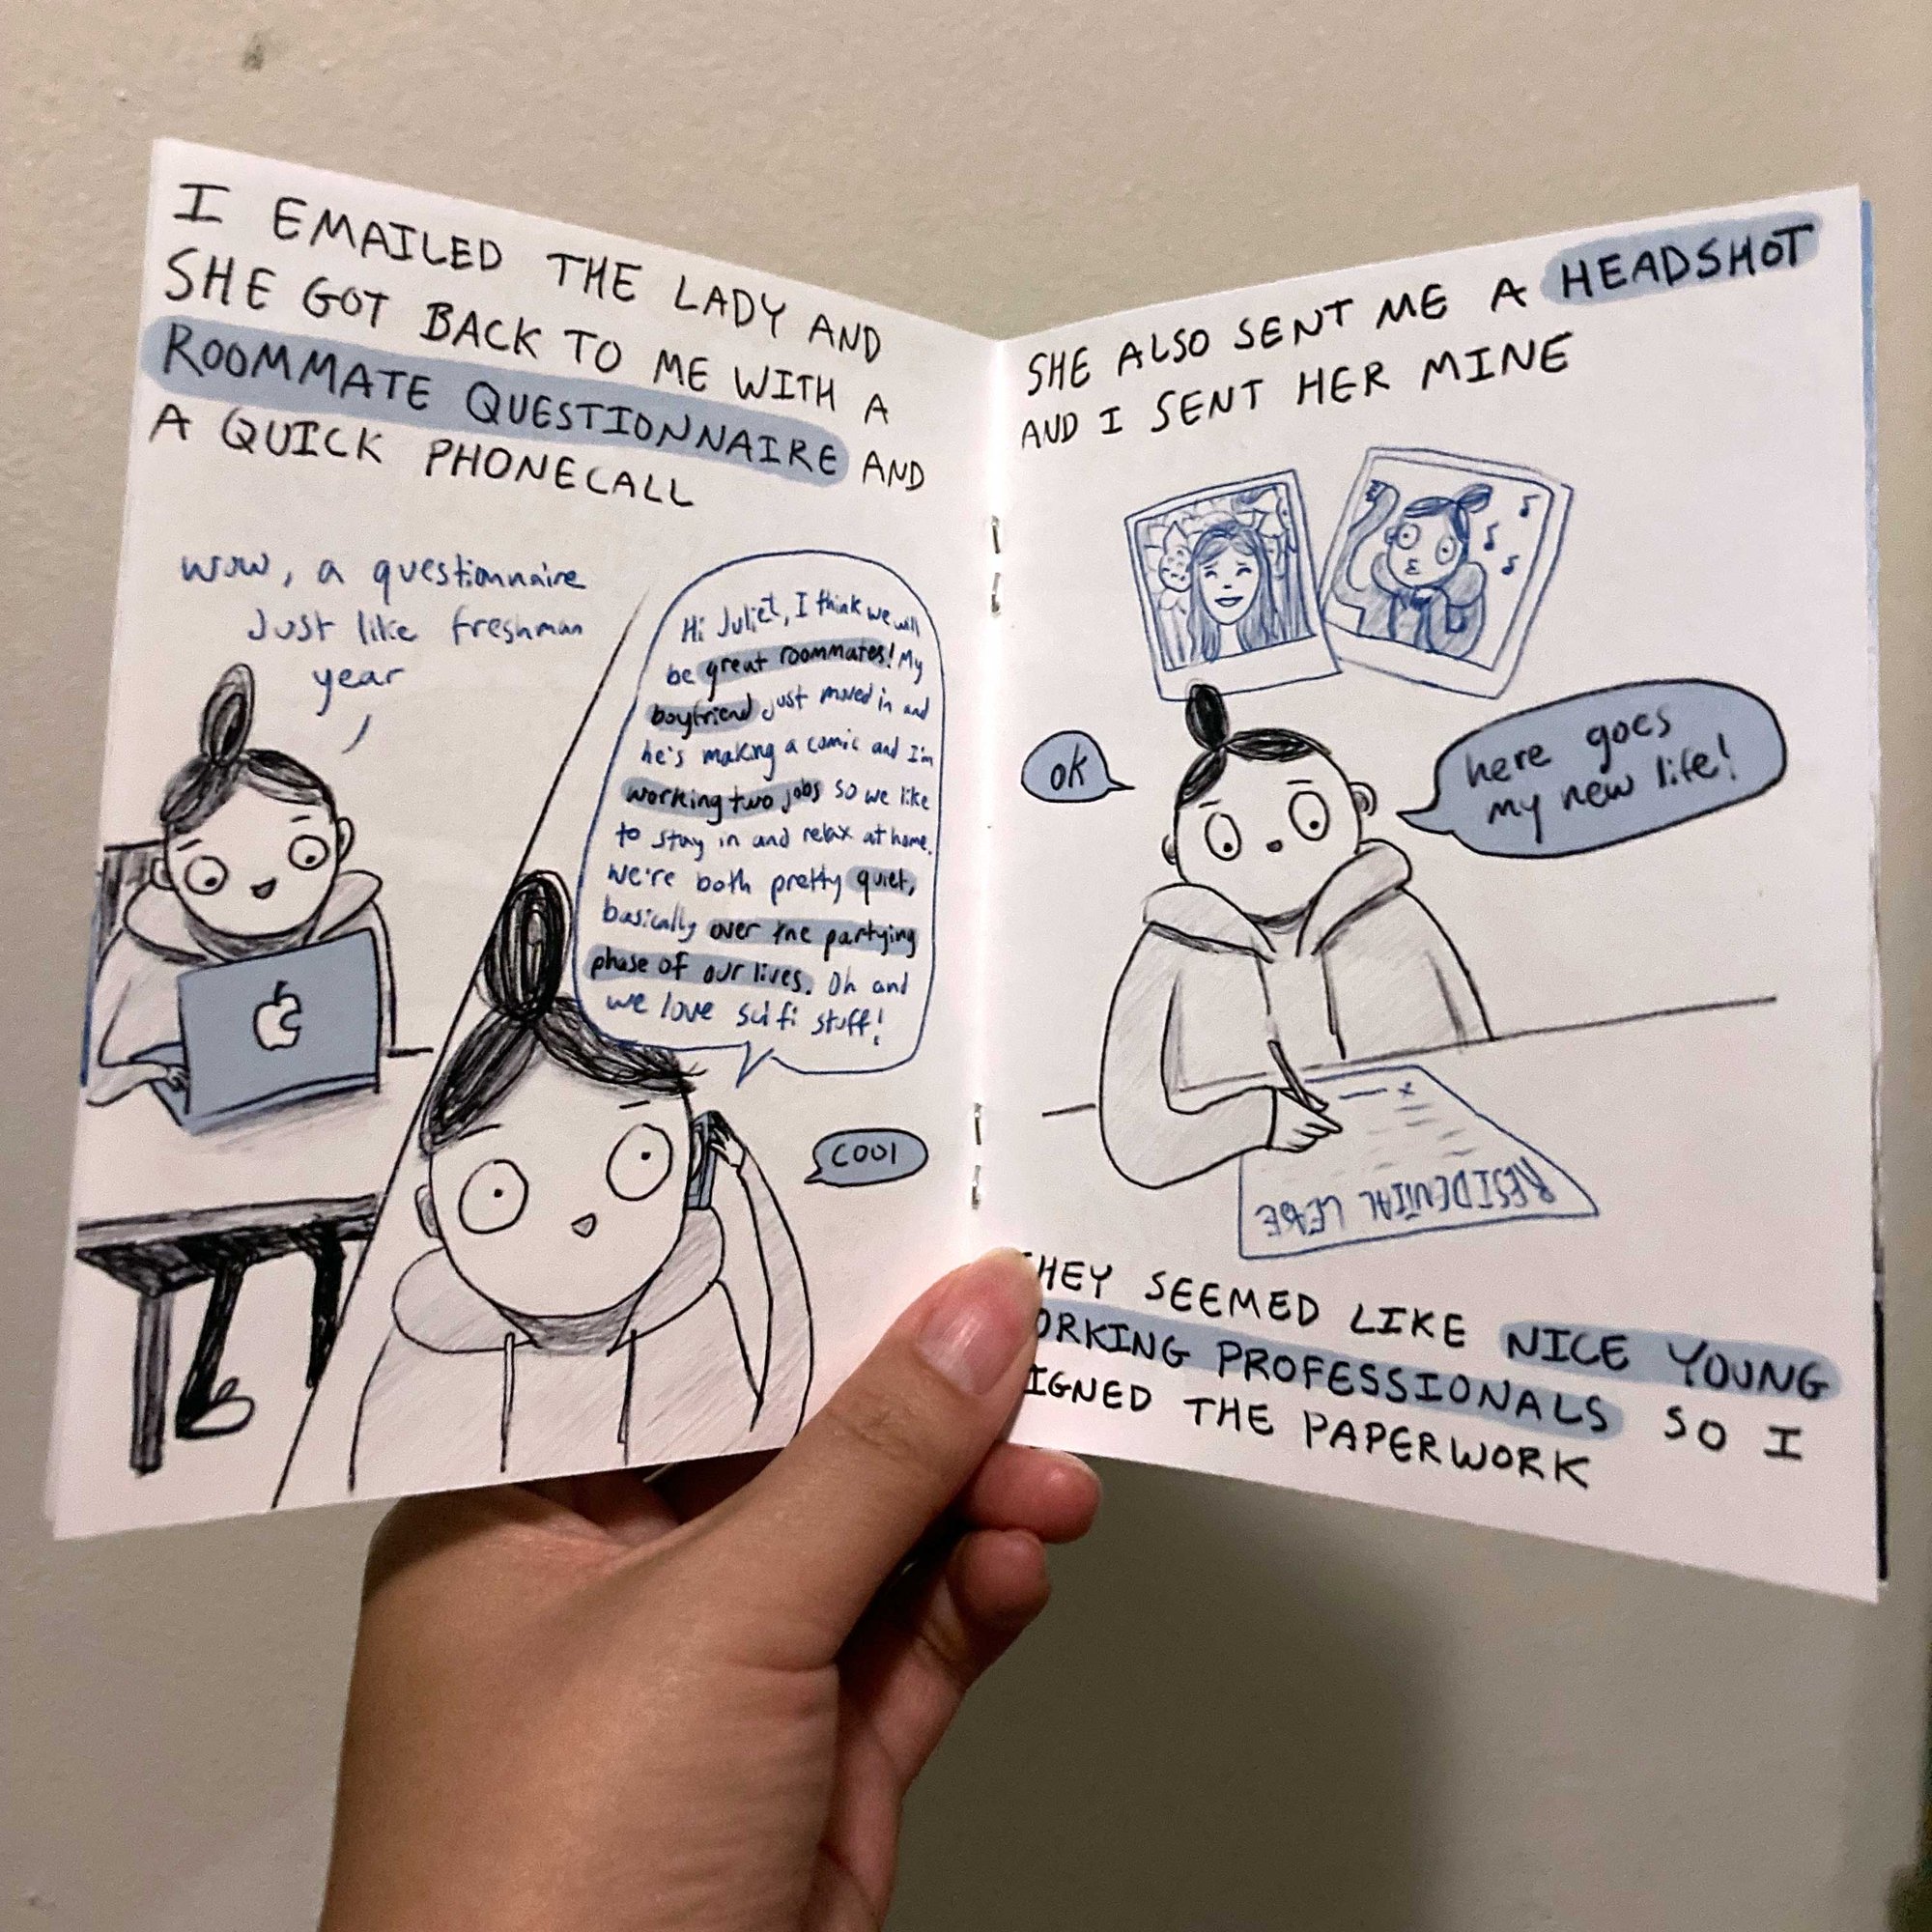 I EMAILED THE LADY AND
SHE GOT BACK TO ME WITH A
ROOMMATE QUESTIONNAIRE AND
A QUICK PHONECALL
wow, a questionnaire
Just like freshman
year
Hi Juliet, I think we will
be great roommates! My
boyfriend just moved in and
he's making a comic and I'm
working two jobs so we like
to stay in and relax at home.
We're both pretty quiet,
basically over the partying
phase of our lives. Oh and
we love sci fi stuff!
COOl
SHE ALSO SENT ME A HEADSHOT
AND I SENT HER MINE
ok
here goes
my new life!
x
RESIDENTIAL LEASE
HEY SEEMED LIKE NICE YOUNG
ORKING PROFESSIONALS SO I
IGNED THE PAPERWORK